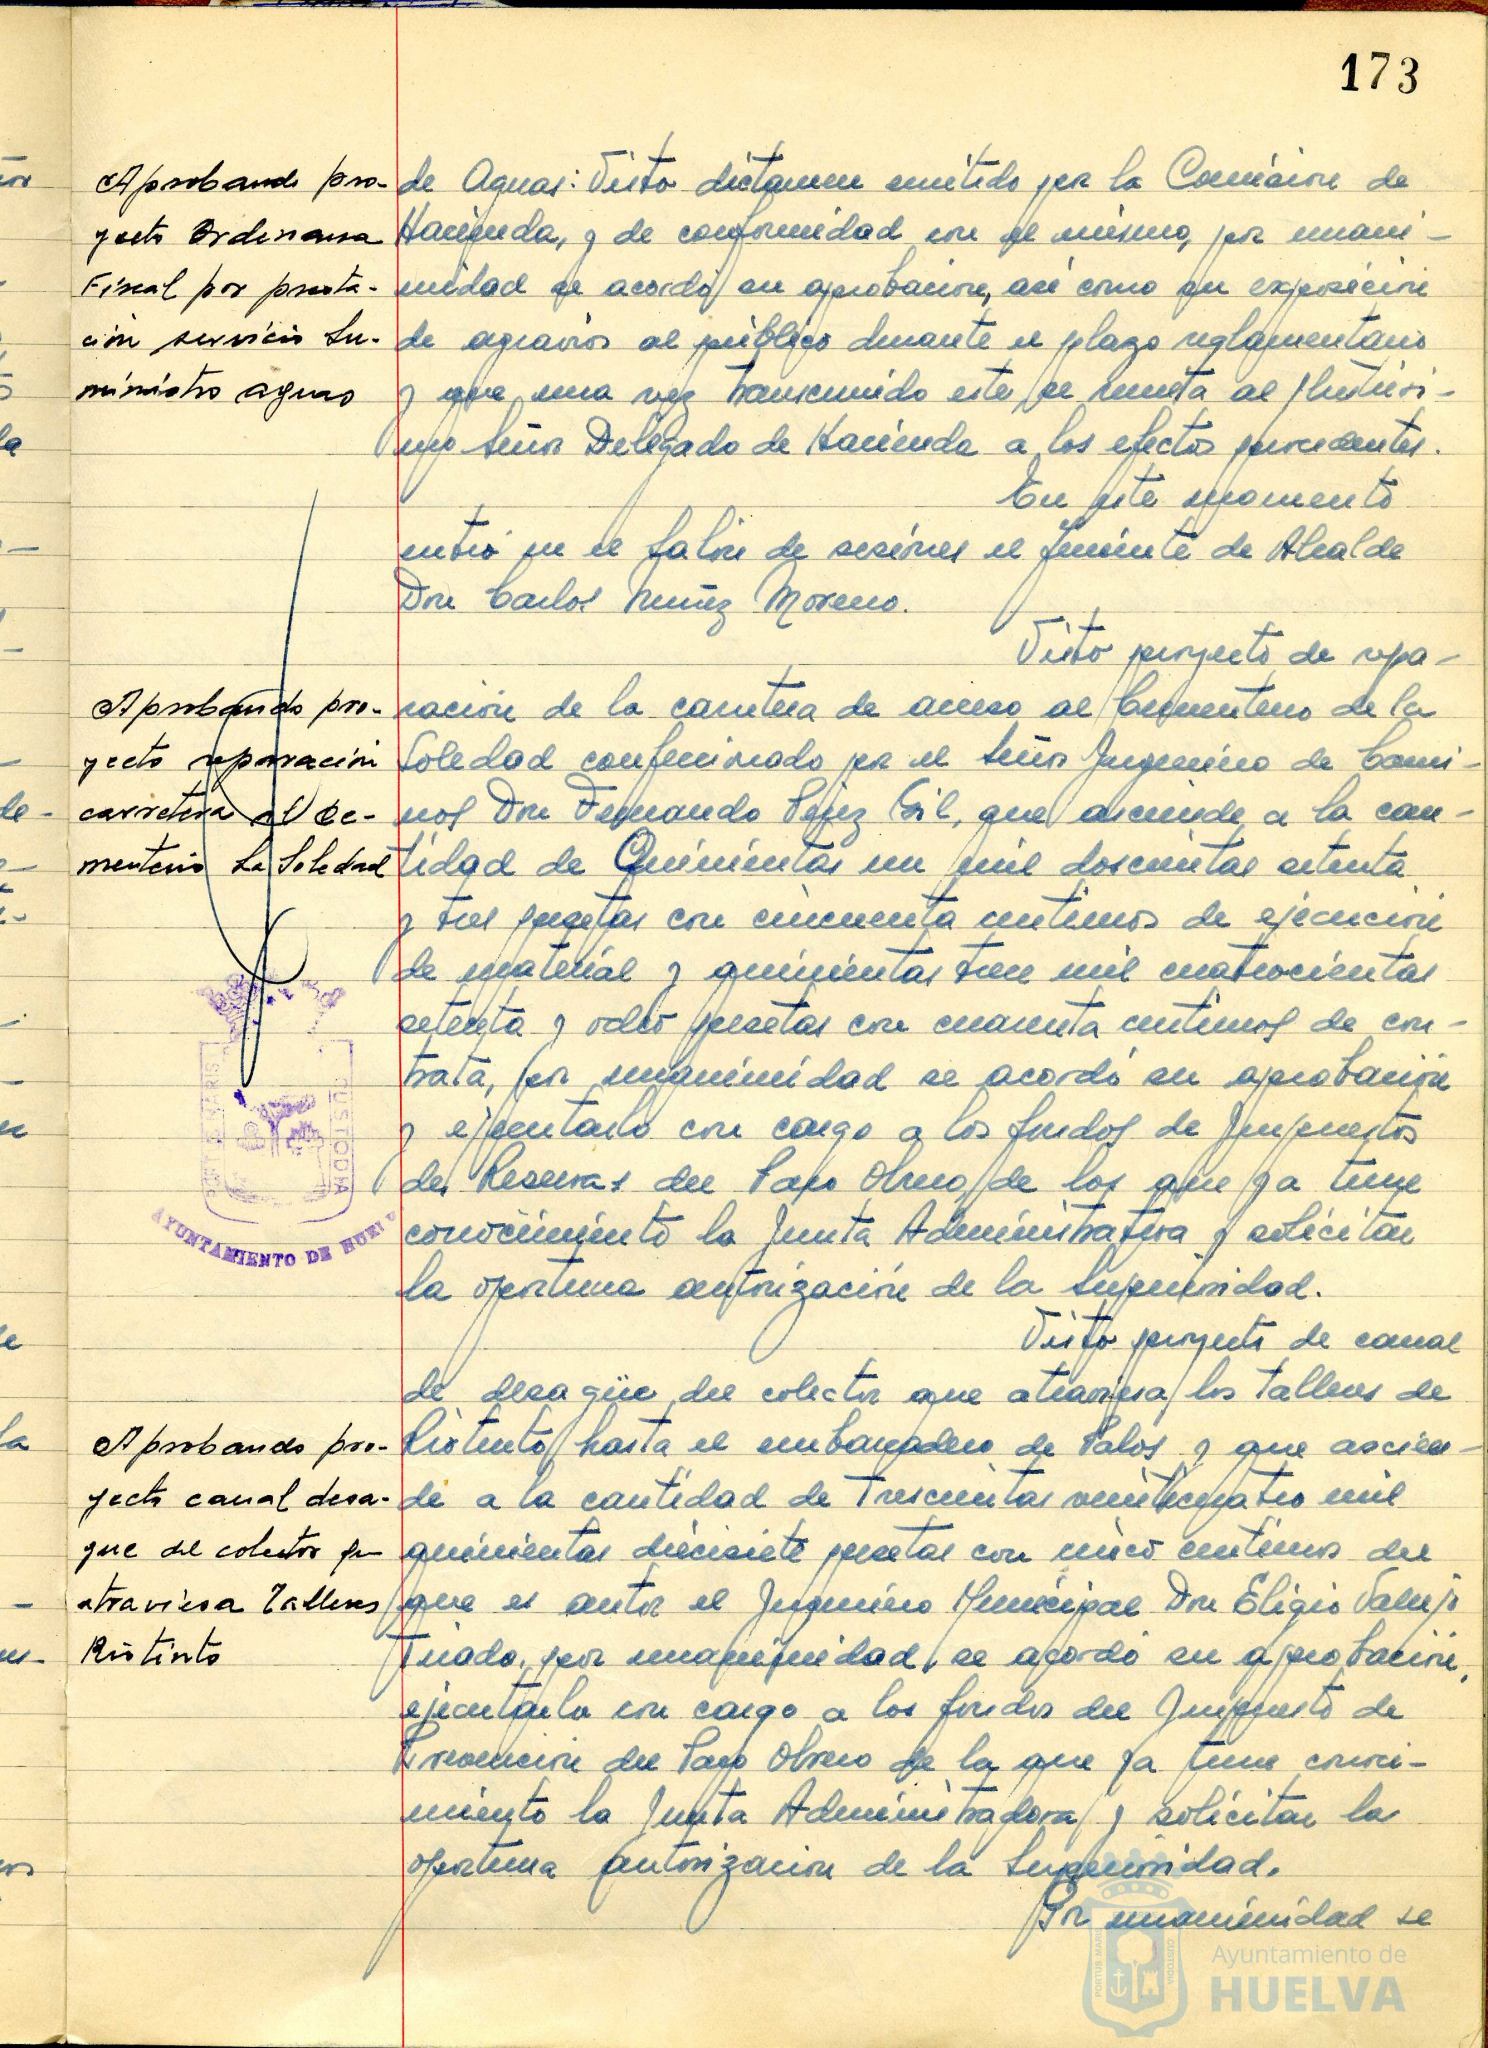 173
Aprobando pro-
yecto Ordenanza
Fiscal por presta-
ción servicio Su-
ministro aguas
de Aguas: Visto dictamen emitido por la Comisión de
Hacienda, y de conformidad con el mismo, por unani-
midad se acordó su aprobación, así como su exposición
de agravios al público durante el plazo reglamentario
y que una vez transcurrido este se remita al Ilustrísi-
mo Señor Delegado de Hacienda a los efectos procedentes.
En este momento
entró en el Salón de sesiones el Teniente de Alcalde
Don Carlos Nuñez Moreno.
Aprobando pro-
yecto reparación
carretera al Ce-
menterio La Soledad
Visto proyecto de repa-
ración de la carretera de acceso al Cementerio de la
Soledad confeccionado por el Señor Ingeniero de Cami-
nos Don Fernando Pérez Gil, que asciende a la can-
tidad de Quinientas un mil doscientas setenta
y tres pesetas con cincuenta centimos de ejecución
de material y quinientas tres mil cuatrocientas
setenta y ocho pesetas con cuarenta centimos de con-
trata, por unanimidad se acordó su aprobación
y ejecutarlo con cargo a los fondos de Impuestos
de Reservas del Paro Obrero, de los que ya tiene
conocimiento la Junta Administrativa y solicitar
la oportuna autorización de la Superioridad.
PORTUS MARIS
CUSTODIA
AYUNTAMIENTO DE HUELV
Aprobando pro-
yecto canal desa-
gue del colector que
atraviesa Talleres
Riotinto
Visto proyecto de canal
de desagüe del colector que atraviesa los talleres de
Riotinto hasta el embarcadero de Palos y que ascien-
de a la cantidad de Trescientas veinticuatro mil
quinientas diecisiete pesetas con cinco centimos del
que es autor el Ingeniero Municipal Don Eligio
por unanimidad, se acordó su aprobación,
ejecutarlo con cargo a los fondos del Impuesto de
Prevención del Paro Obrero de la que ya tiene conoci-
miento la Junta Administradora y solicitar la
oportuna autorización de la Superioridad.
Por unanimidad se
PORTUS MARIS
CUSTODIA
Ayuntamiento de
HUELVA